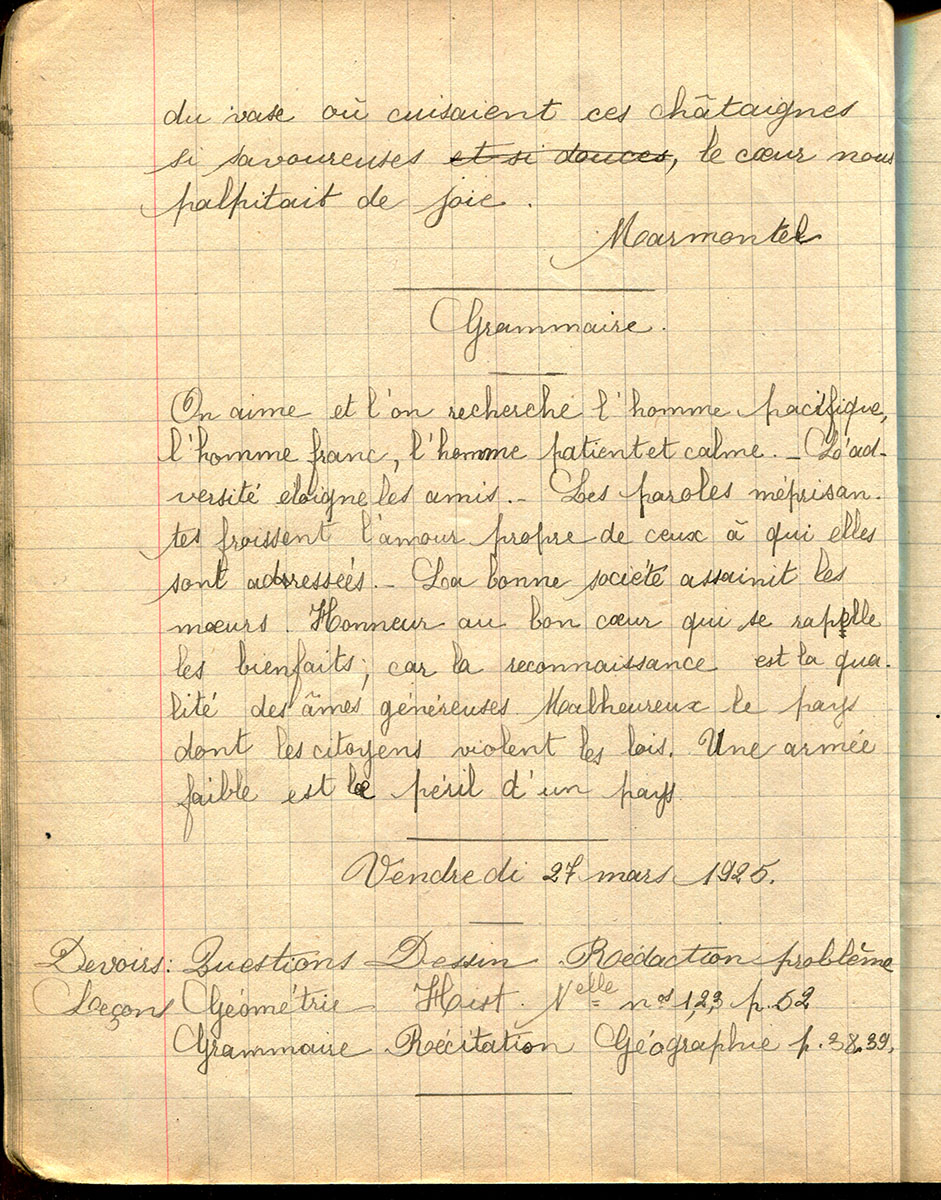 du vase où cuisaient ces châtaignes
si savoureuses et si douces, le cœur nous
palpitait de joie.
Marmontel
Grammaire.
On aime et l'on recherche l'homme pacifique,
l'homme franc, l'homme patient et calme. – L'ad-
versité éloigne les amis. – Les paroles méprisan-
tes froissent l'amour propre de ceux à qui elles
sont adressées. – La bonne société assainit les
mœurs. Honneur au bon cœur qui se rappelle
les bienfaits; car la reconnaissance est la qua-
lité des âmes généreuses Malheureux le pays
dont les citoyens violent les lois. Une armée
faible est le péril d'un pays
Vendredi 27 mars 1925.
Devoirs: Questions Dessin Rédaction problème
Leçons Géométrie Hist. Nelle nos 1,2,3 p. 52
Grammaire Récitation Géographie p. 38.39.